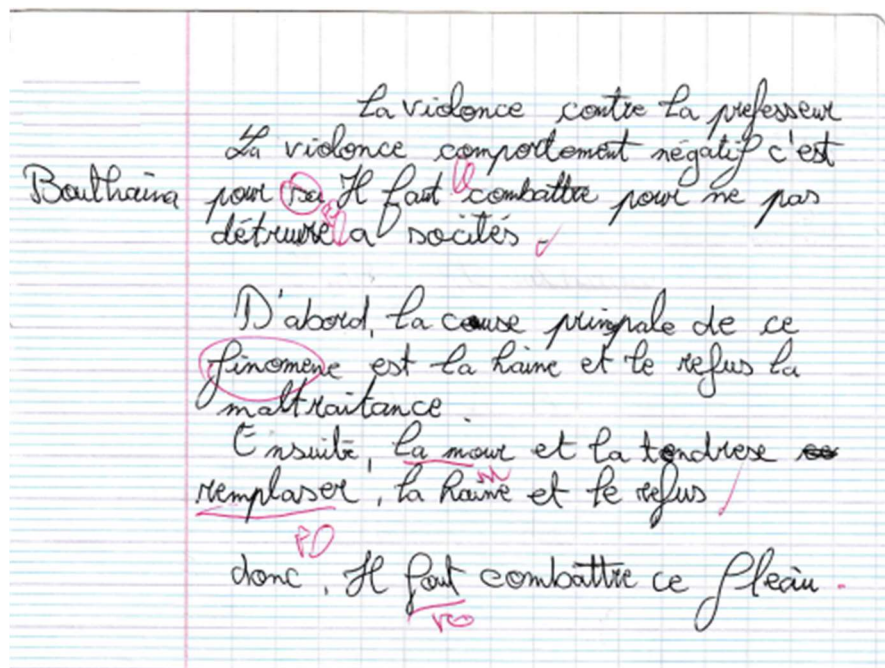 La violonce contre la prefesseur
La violonce comportoment négatif c'est
Boulhaina
pour sa Il faut combattre pour ne pas
détruire la socités.
D'abord, la cause pringpale de ce
finomene est la haine et le refus la
maltraitance.
Ensuite, la mour et la tendrese
remplaser, la haine et le refus
donc, Il faut combattre ce fleàu.